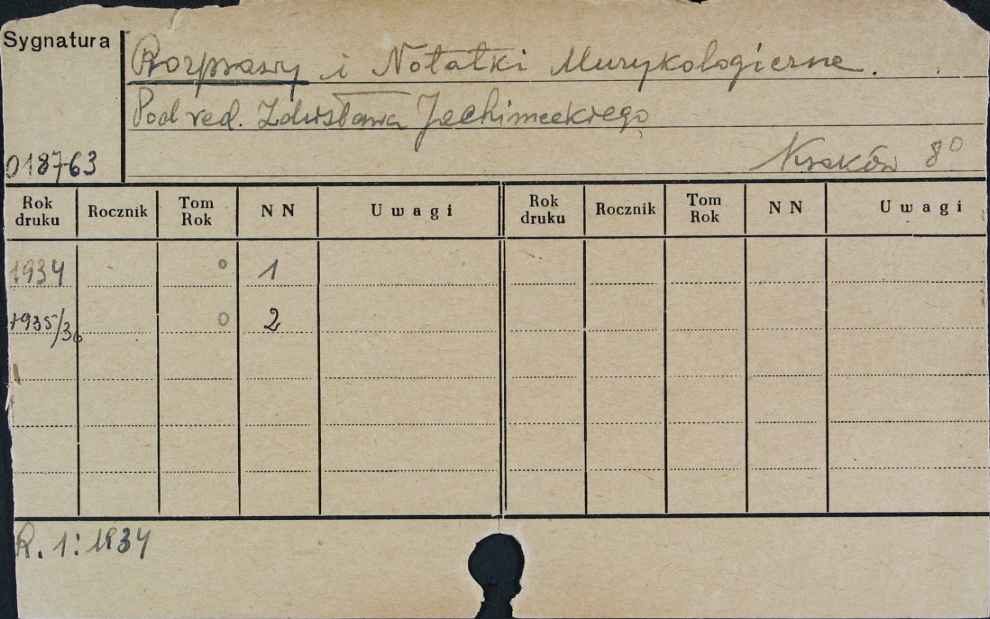 Sygnatura
Rozprawy i Notatki Muzykologiczne.
Pod red. Zdzisława Jachimeckiego
018763
Kraków 8°
Rok druku Rocznik Tom Rok NN Uwagi Rok druku Rocznik Tom Rok NN Uwagi
1934 ° 1
1935/36 ° 2
R. 1: 1934